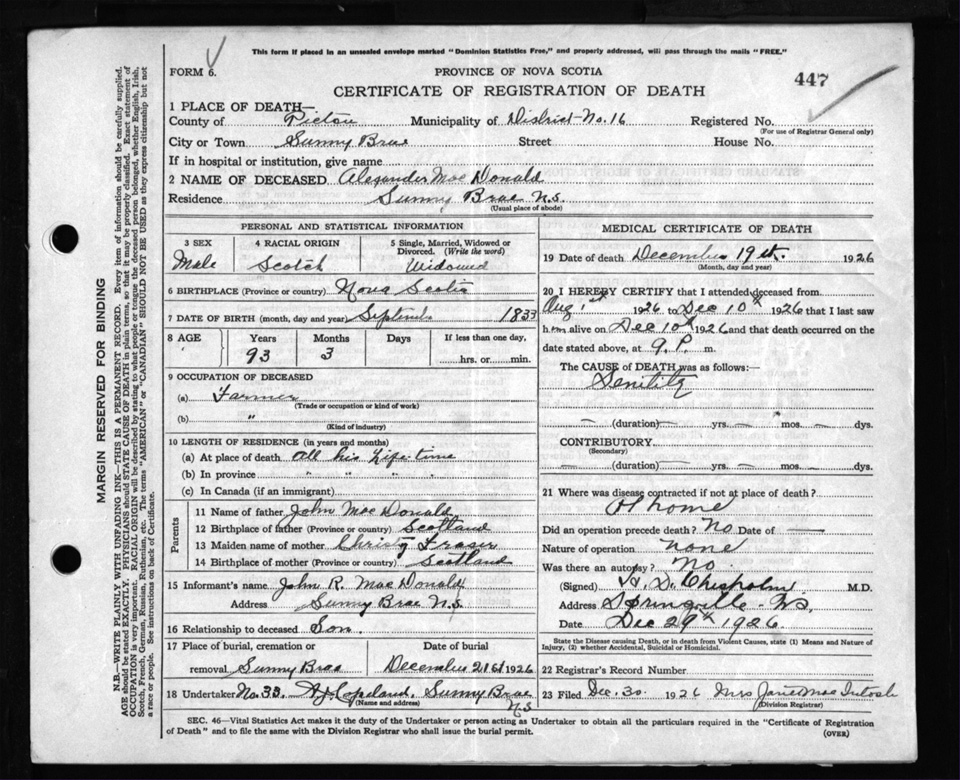 This form if placed in an unsealed envelope marked "Dominion Statistics Free," and properly addressed, will pass through the mails "FREE."
FORM 6.
PROVINCE OF NOVA SCOTIA
447
CERTIFICATE OF REGISTRATION OF DEATH
1 PLACE OF DEATH—
County of Pictou Municipality of District-No. 16 Registered No.
(For use of Registrar General only)
City or Town Sunny Brae Street House No.
If in hospital or institution, give name
2 NAME OF DECEASED Alexander Mac Donald
Residence Sunny Brae N.S.
(Usual place of abode)
PERSONAL AND STATISTICAL INFORMATION
3 SEX 4 RACIAL ORIGIN 5 Single, Married, Widowed or
Divorced. (Write the word)
Male Scotch Widowed
6 BIRTHPLACE (Province or country) Nova Scotia
7 DATE OF BIRTH (month, day and year) Septembe 1833
8 AGE Years Months Days If less than one day,
93 3 hrs. or min.
9 OCCUPATION OF DECEASED
(a) Farmer
(Trade or occupation or kind of work)
(b) "
(Kind of industry)
10 LENGTH OF RESIDENCE (in years and months)
(a) At place of death all his Life-time
(b) In province " "
(c) In Canada (if an immigrant)
Parents
11 Name of father John Mac Donald
12 Birthplace of father (Province or country) Scotland
13 Maiden name of mother Christy Fraser
14 Birthplace of mother (Province or country) Scotland
15 Informant's name John R. Mac Donald
Address Sunny Brae N.S.
16 Relationship to deceased Son.
17 Place of burial, cremation or Date of burial
removal Sunny Brae December 21st 1926
18 Undertaker No. 33. Copeland, Sunny Brae
(Name and address) N.S
MEDICAL CERTIFICATE OF DEATH
19 Date of death December 19th. 1926
(Month, day and year)
20 I HEREBY CERTIFY that I attended deceased from
Aug 1st 1926 to Dec 10th 1926 that I last saw
him alive on Dec 10th 1926 and that death occurred on the
date stated above, at 9. P. m.
The CAUSE of DEATH was as follows:—
Senility
— (duration) — yrs. — mos. — dys.
CONTRIBUTORY
(Secondary)
— (duration) — yrs. — mos. — dys.
21 Where was disease contracted if not at place of death?
At home
Did an operation precede death? No Date of —
Nature of operation none
Was there an autopsy? No.
(Signed) H. D. Chisholm M.D.
Address Springville N.S.
Date Dec 29th 1926.
State the Disease causing Death, or in death from Violent Causes, state (1) Means and Nature of
Injury, (2) whether Accidental, Suicidal or Homicidal.
22 Registrar's Record Number
23 Filed Dec. 30. 1926 Mrs Jane Mac Intosh
(Division Registrar)
SEC. 46—Vital Statistics Act makes it the duty of the Undertaker or person acting as Undertaker to obtain all the particulars required in the "Certificate of Registration
of Death" and to file the same with the Division Registrar who shall issue the burial permit.
(OVER)
MARGIN RESERVED FOR BINDING
N.B.—WRITE PLAINLY WITH UNFADING INK—THIS IS A PERMANENT RECORD. Every item of information should be carefully supplied.
AGE should be stated EXACTLY. PHYSICIANS should STATE CAUSE OF DEATH in plain terms, so that it may be properly classified. Exact statement of
OCCUPATION is very important. RACIAL ORIGIN will be described by stating to what people or tongue the deceased person belonged, whether English, Irish,
Scotch, French, German, Russian, Ruthenian, etc. The terms "AMERICAN" or "CANADIAN" SHOULD NOT BE USED as they express citizenship but not
a race or people. See instructions on back of Certificate.